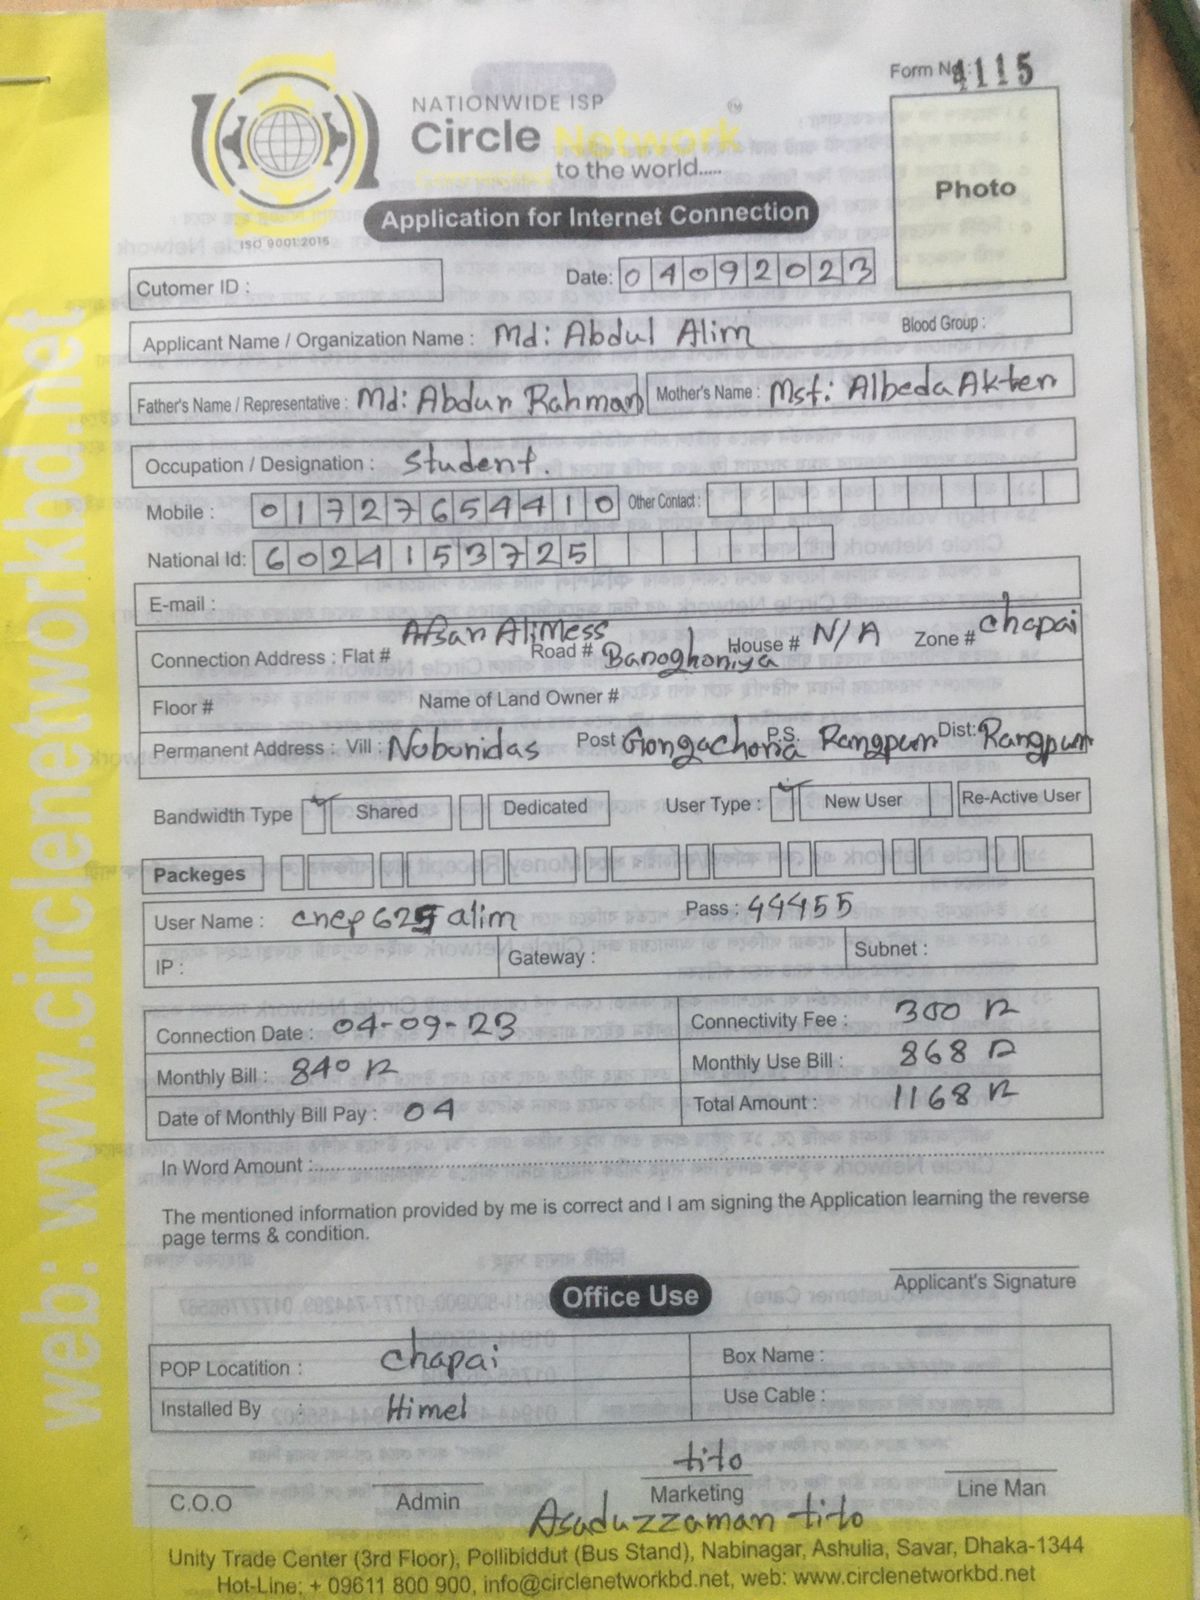 Form No: 4115
NATIONWIDE ISP
Circle Network
Connected to the world.....
ISO 9001:2015
Application for Internet Connection
Photo
Cutomer ID :
Date: 04092023
Applicant Name / Organization Name : Md: Abdul Alim Blood Group :
Father's Name / Representative : Md: Abdur Rahman Mother's Name : Mst: Albeda Akter
Occupation / Designation : Student.
Mobile : 01727654410 Other Contact :
National Id: 6024153725
E-mail :
Connection Address : Flat # Afsar Ali Mess Road # Banoghoniya House # N/A Zone # chapai
Floor # Name of Land Owner #
Permanent Address : Vill : Nobonidas Post Gongachora P.S. Rangpur Dist: Rangpur
Bandwidth Type Shared Dedicated User Type : New User Re-Active User
Packeges
User Name : cnep625alim Pass : 44455
IP : Gateway : Subnet :
Connection Date : 04-09-23 Connectivity Fee : 300
Monthly Bill : 840 Monthly Use Bill : 868
Date of Monthly Bill Pay : 04 Total Amount : 1168
In Word Amount :
The mentioned information provided by me is correct and I am signing the Application learning the reverse
page terms & condition.
Applicant's Signature
Office Use
POP Locatition : chapai Box Name :
Installed By : Himel Use Cable :
tito
C.O.O Admin Marketing Line Man
Asaduzzaman tito
Unity Trade Center (3rd Floor), Pollibiddut (Bus Stand), Nabinagar, Ashulia, Savar, Dhaka-1344
Hot-Line: + 09611 800 900, info@circlenetworkbd.net, web: www.circlenetworkbd.net
web: www.circlenetworkbd.net